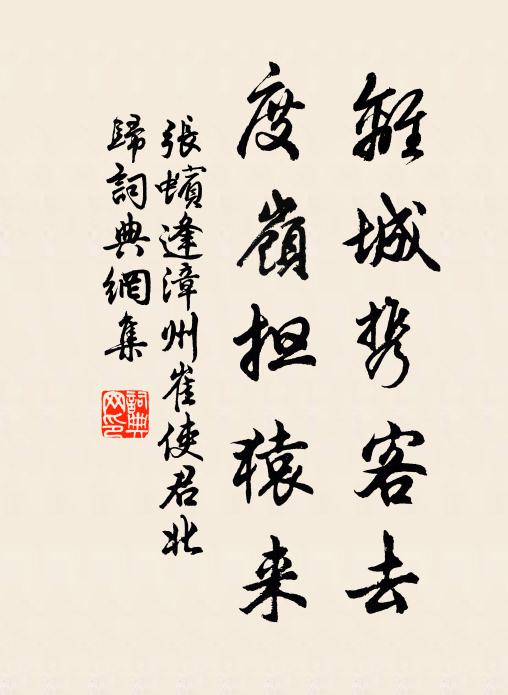 離城携客去
度嶺担猿来
張蠙逢漳州崔使君北
歸詞典網集
詞典网印